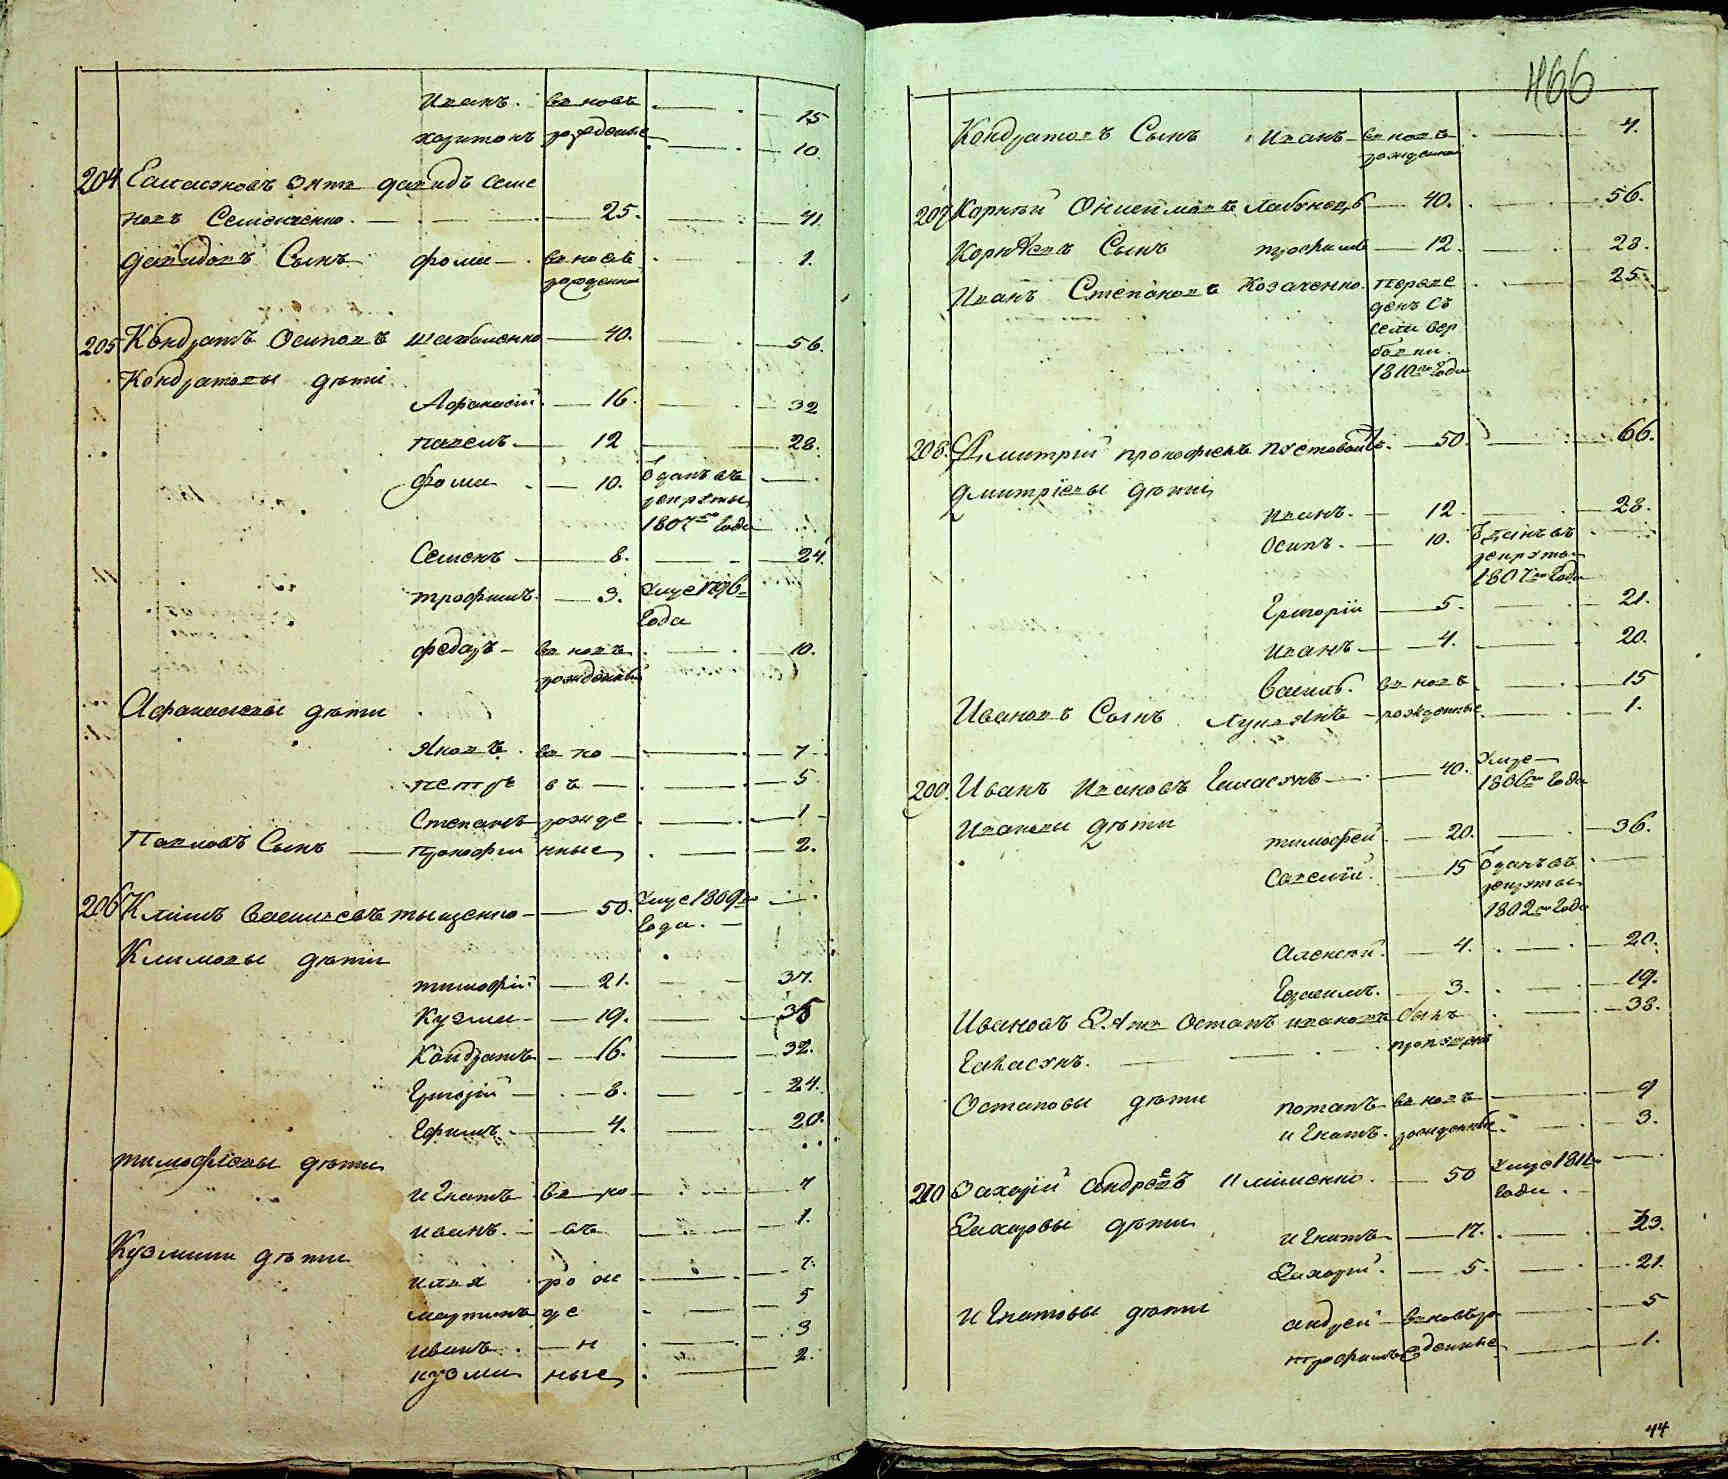 Иванъ. вновь — 15
Харитонъ рожденные — 10.
204 зять давидъ Семе
новъ Семенченко. — 25. — 41
давидовъ Сынъ фома — вновь — 1.
рожденны
205 Кондратъ Осиповъ — 40. — 56.
Кондратовы дѣти
Афанасій — 16. — 32
павелъ — 12 — 28.
фома — 10. Отданъ въ
рекруты
1807го Года
Семенъ — 8. — 24.
трофимъ — 3. умре 1796
Года
федоръ — вновь — 10.
рожденный
Афанасьевы дѣти
Яковъ. вно — 7
петръ въ — 5
Степанъ рожде — 1
Павловъ Сынъ — прокофии нные — 2.
206 Климъ Васильевъ тыщенко — 50. умре 1809го
Года. —
Климовы дѣти
тимофій — 21. — 37.
Кузма — 19. — 35
Кондратъ — 16. — 32.
Григорій — 8. — 24.
Ефимъ — 4. — 20.
тимофѣевы дѣти
игнатъ вно — 7
иванъ. — въ — 1.
Кузмины дѣти
илья рож — 7.
мартинъ де — 5
иванъ — н — 3
кузма ные — 2.
466
Кондратовъ Сынъ Иванъ — вновь — 4.
рожденны
207 Корнѣй Онисимовъ — 40. — 56.
Корнѣевъ Сынъ трофимъ — 12. — 28.
Иванъ Степановъ Козаченко. переве — 25.
денъ съ
села вер
бовки
1810го Года
208. Дмитрій прокофіевъ пустовойтъ. — 50. — 66.
дмитріевы дѣти
иванъ. — 12 — 28.
Осипъ. — 10. Отданъ въ
рекруты
1807го Года
Григорій — 5. — 21.
иванъ — 4. — 20.
Василь. вновь — 15
Ивановъ Сынъ Лукьянъ — рожденные — 1.
209. Иванъ Ивановъ — 40. умре —
1806го Года
Ивановы дѣти
тимофей — 20. — 36.
Савелій. — 15 Отданъ въ
рекруты
1802го Года
Алексѣй. — 4. — 20.
Герасимъ. — 3. — 19.
Ивановъ Зять Остапъ ивановъ былъ — 38.
пропущенъ
Остаповы дѣти потапъ вновь — 9
игнатъ. рожденны — 3.
210 Захарій Андреевъ Клименко. — 50 умре 1811го
Года. —
Захаровы дѣти
игнатъ — 17. — 33.
Захарій. — 5. — 21.
игнатовы дѣти андрей — вновь ро — 5
трофимъ жденные — 1.
44